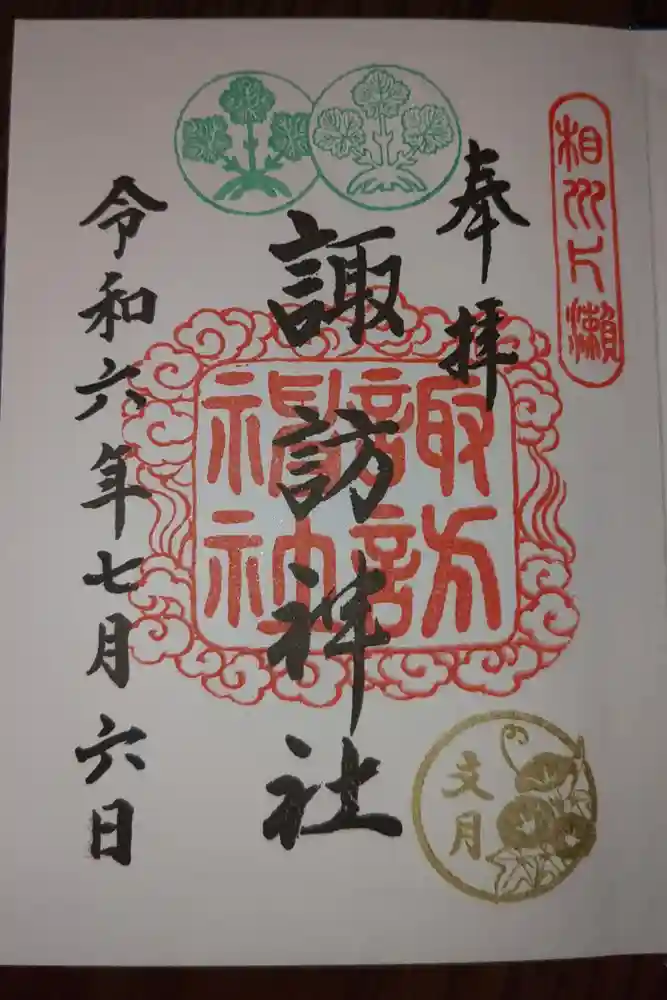 相州片瀨
奉拝
諏訪神社
諏訪
神社
文月
令和六年七月六日